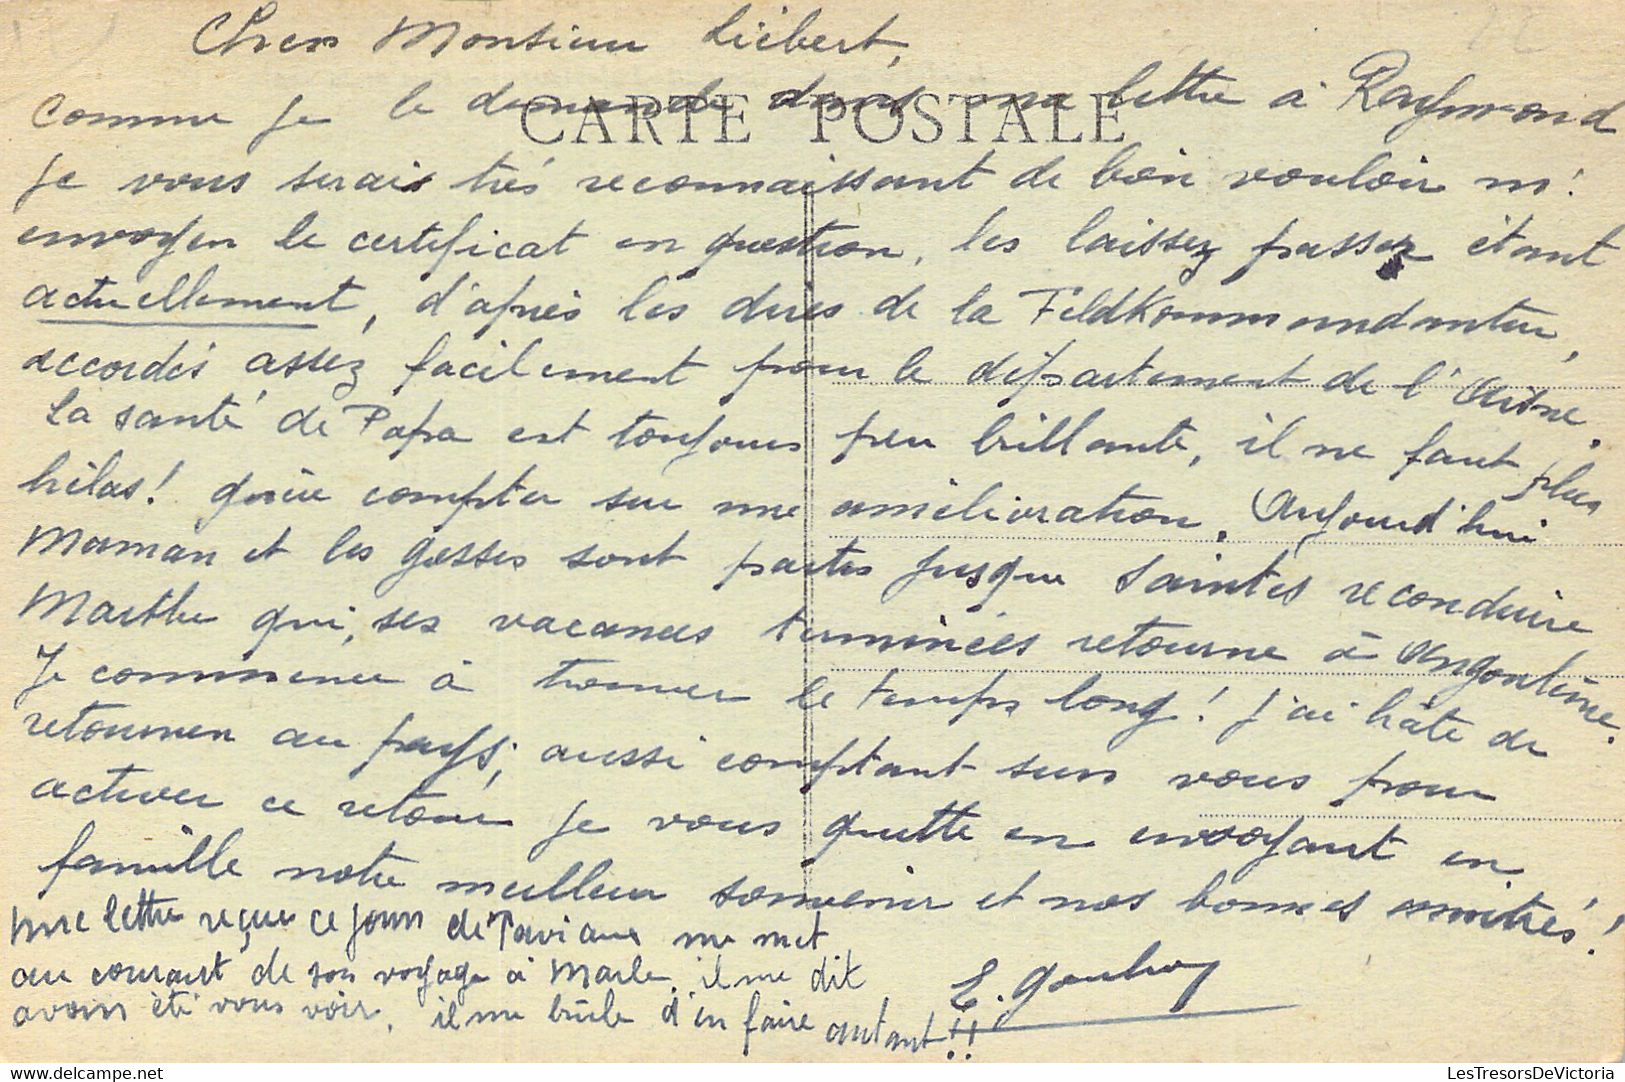 Cher Monsieur Liébert,
Comme je le demande dans ma lettre à Raymond
CARTE POSTALE
je vous serais très reconnaissant de bien vouloir m'
envoyer le certificat en question, les laissez passer étant
actuellement, d'après les dires de la Feldkommandantur,
accordés assez facilement pour le département de l'Aisne.
La santé de Papa est toujours peu brillante, il ne faut plus
hélas! guère compter sur une amélioration. Aujourd'hui
Maman et les gosses sont partis jusque Saintes reconduire
Marthe qui, ses vacances terminées retourne à Angoulême.
Je commence à trouver le temps long! j'ai hâte de
retourner au pays; aussi comptant sur vous pour
activer ce retour je vous quitte en envoyant en
famille notre meilleur souvenir et nos bonnes amitiés!
une lettre reçue ce jour de me met
au courant de son voyage à Marle, il me dit
avoir été vous voir, il me brûle d'en faire autant!!
E.
LesTresorsDeVictoria
www.delcampe.net